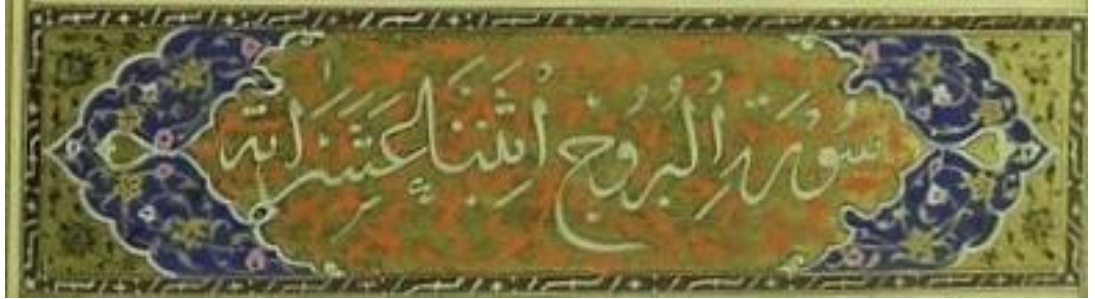 سُورَةُ الْبُرُوجِ اثْنَتَا عَشَرَ آيَةً